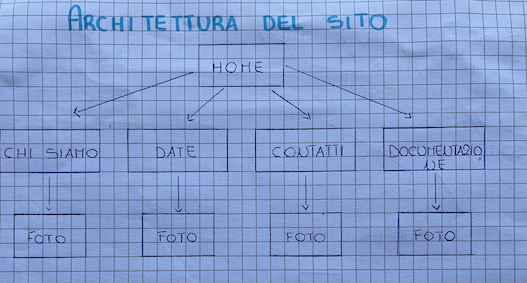 ARCHITETTURA DEL SITO
HOME
CHI SIAMO
DATE
CONTATTI
DOCUMENTAZIO
NE
FOTO
FOTO
FOTO
FOTO